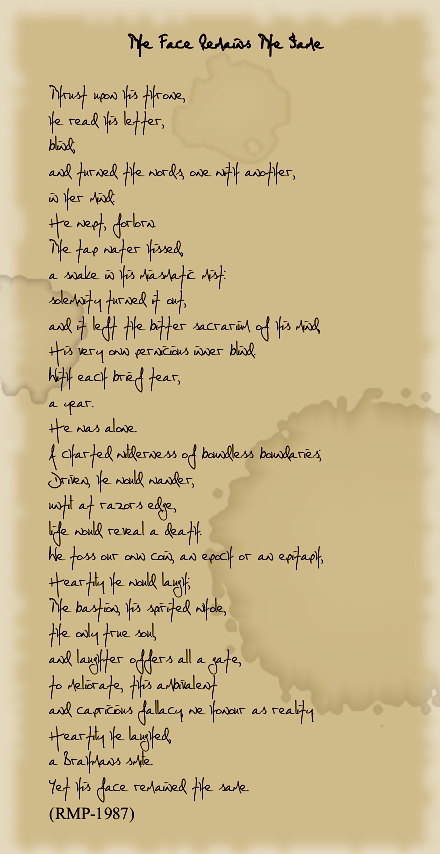 The Face Remains The Same
Thrust upon his throne,
He read his letter,
blind,
and turned the words, one with another,
in her mind:
He wept, forlorn.
The tap water hissed,
a snake in his miasmatic mist:
solemnity turned it out,
and it left the bitter sacrarium of his mind,
His very own pernicious inner blind.
With each brief tear,
a year.
He was alone.
A charted wilderness of boundless boundaries;
Driven, he would wander,
until at razors edge,
life would reveal a death.
We toss our own coin, an epoch or an epitaph,
Heartily he would laugh;
The bastion, his spirited whole,
the only true soul,
and laughter offers all a gate,
to meliorate, this ambivalent
and capricious fallacy we honour as reality.
Heartily he laughed,
a Brahmans smile.
Yet his face remained the same.
(RMP-1987)